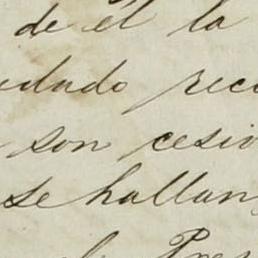 de él la
udado reci
son cesio
se hallan
Pres